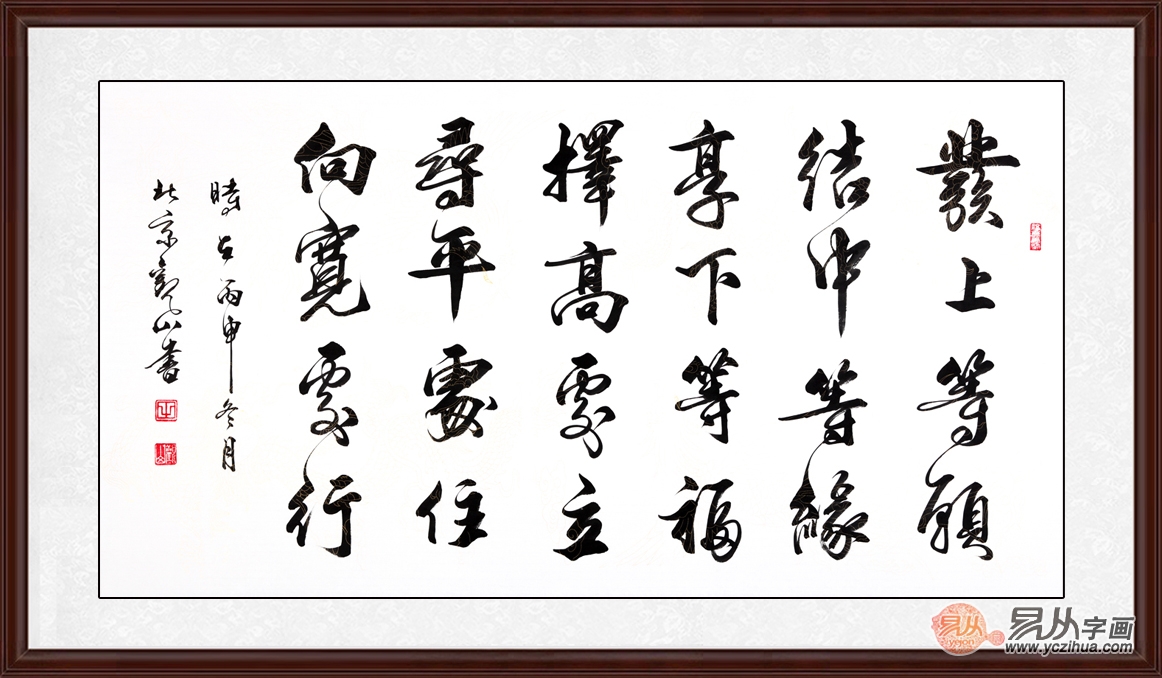 發上等願
結中等緣
享下等福
擇高處立
尋平處住
向寬處行
時在丙申冬月
北京觀山書
易从字画
yicon
www.yczihua.com